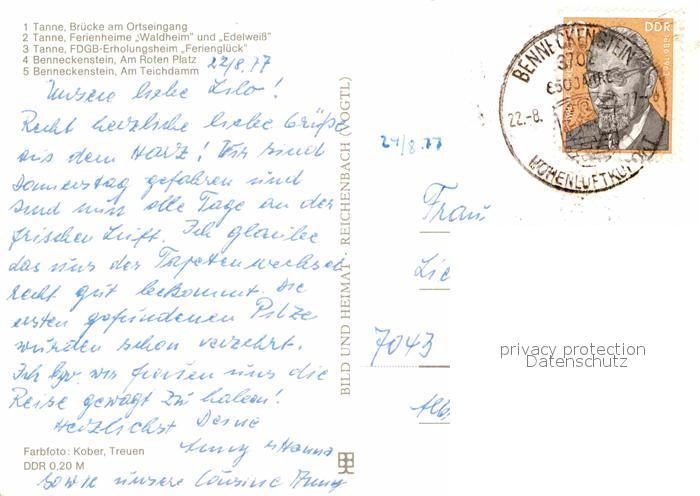 1 Tanne, Brücke am Ortseingang
2 Tanne, Ferienheime „Waldheim" und „Edelweiß"
3 Tanne, FDGB-Erholungsheim „Ferienglück"
4 Benneckenstein, Am Roten Platz
5 Benneckenstein, Am Teichdamm
22/8.77
Unsere liebe Lilo!
Recht herzliche liebe Grüße
aus dem Harz! Wir sind
Donnerstag gefahren und
sind nun alle Tage an der
frischen Luft. Ich glaube
das uns der Tapetenwechsel
recht gut bekommt. Die
ersten gefundenen Pilze
wurden schon verzehrt.
Ich bzw. wir freuen uns die
Reise gewagt zu haben!
Herzlichst Deine
Anny
sowie unsere Cousine Anny
Farbfoto: Kober, Treuen
DDR 0,20 M
BILD UND HEIMAT REICHENBACH (VOGTL)
BENNECKENSTEIN
3702
650 JAHRE
22.-8.
HÖHENLUFTKURORT
DDR
24/8.77
Frau
7043
privacy protection
Datenschutz